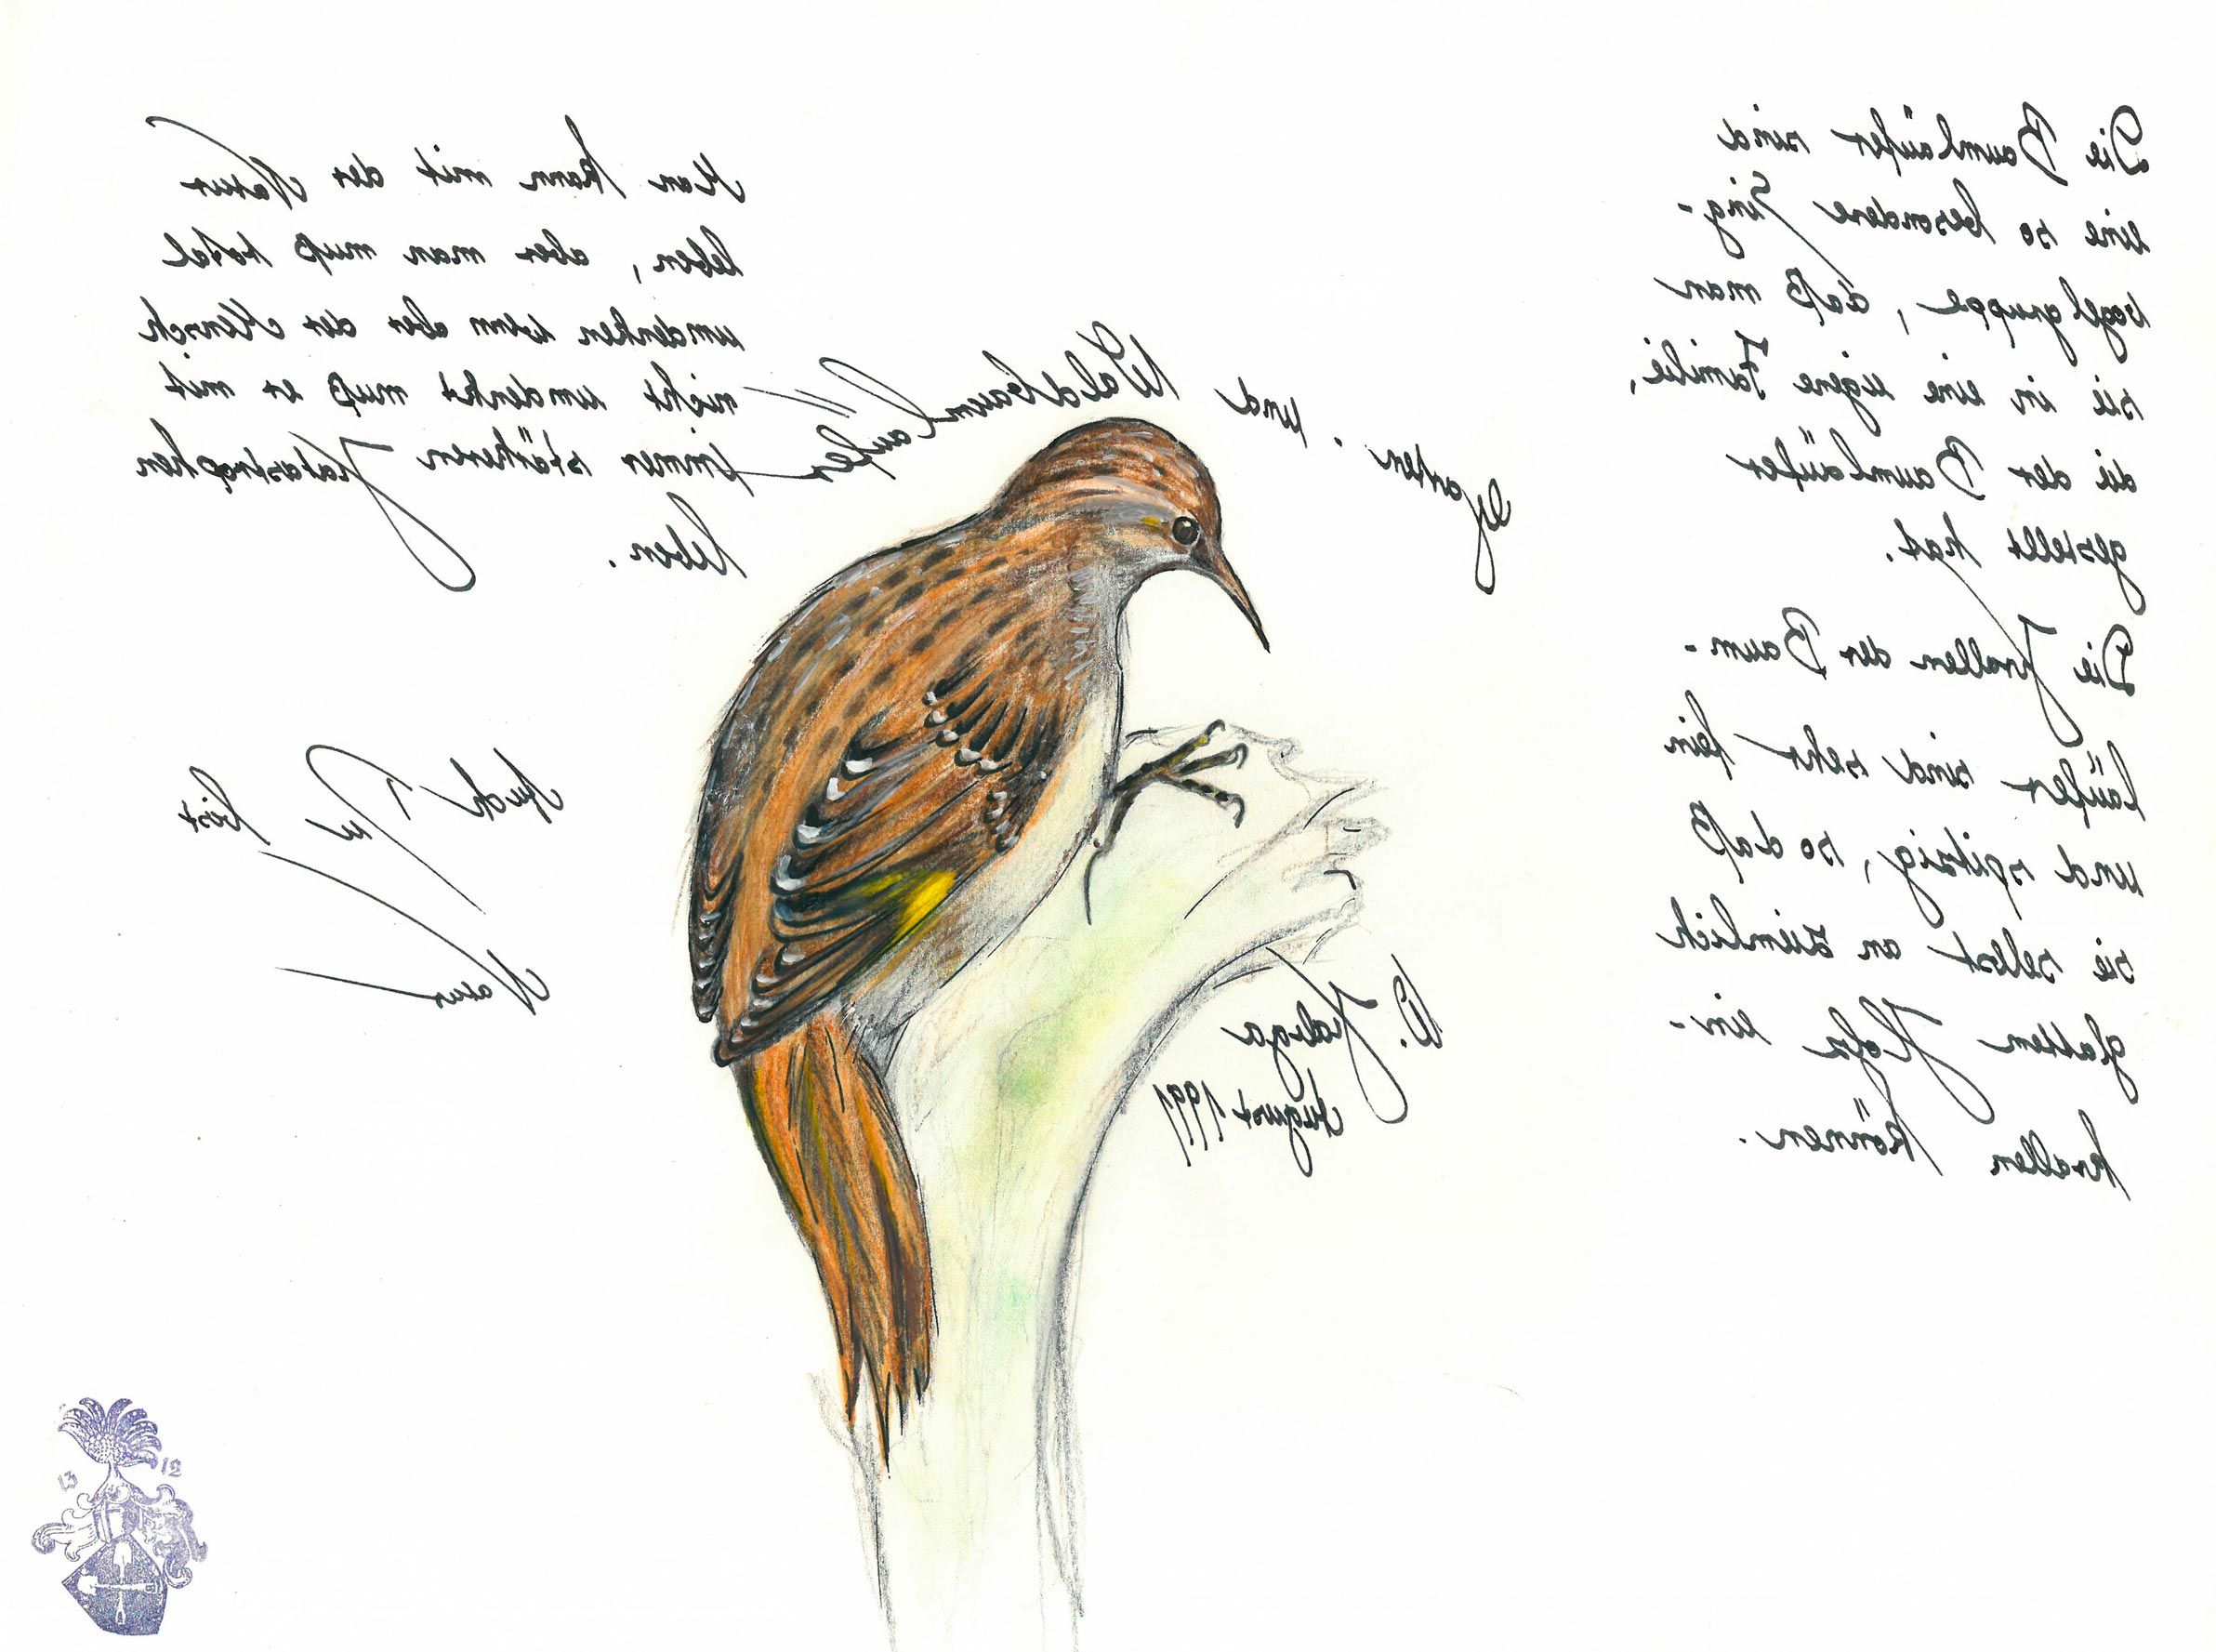 Die Baumläufer sind
eine so besondere Sing-
voglgruppe, daß man
sie in eine eigene Familie,
die der Baumläufer
gestellt hat.
Die Krallen der Baum-
läufer sind sehr fein
und spitzig, so daß
sie selbst an ziemlich
glattem Holz ein-
krallen können.
Garten- und Waldbaumlaufer
Man kann mit der Natur
leben, aber man muß total
umdenken wenn aber der Mensch
nicht umdenkt muß er mit
immer stärkeren Katastrophen
leben.
Auch Du bist
Natur
W.
August 1991
13 12